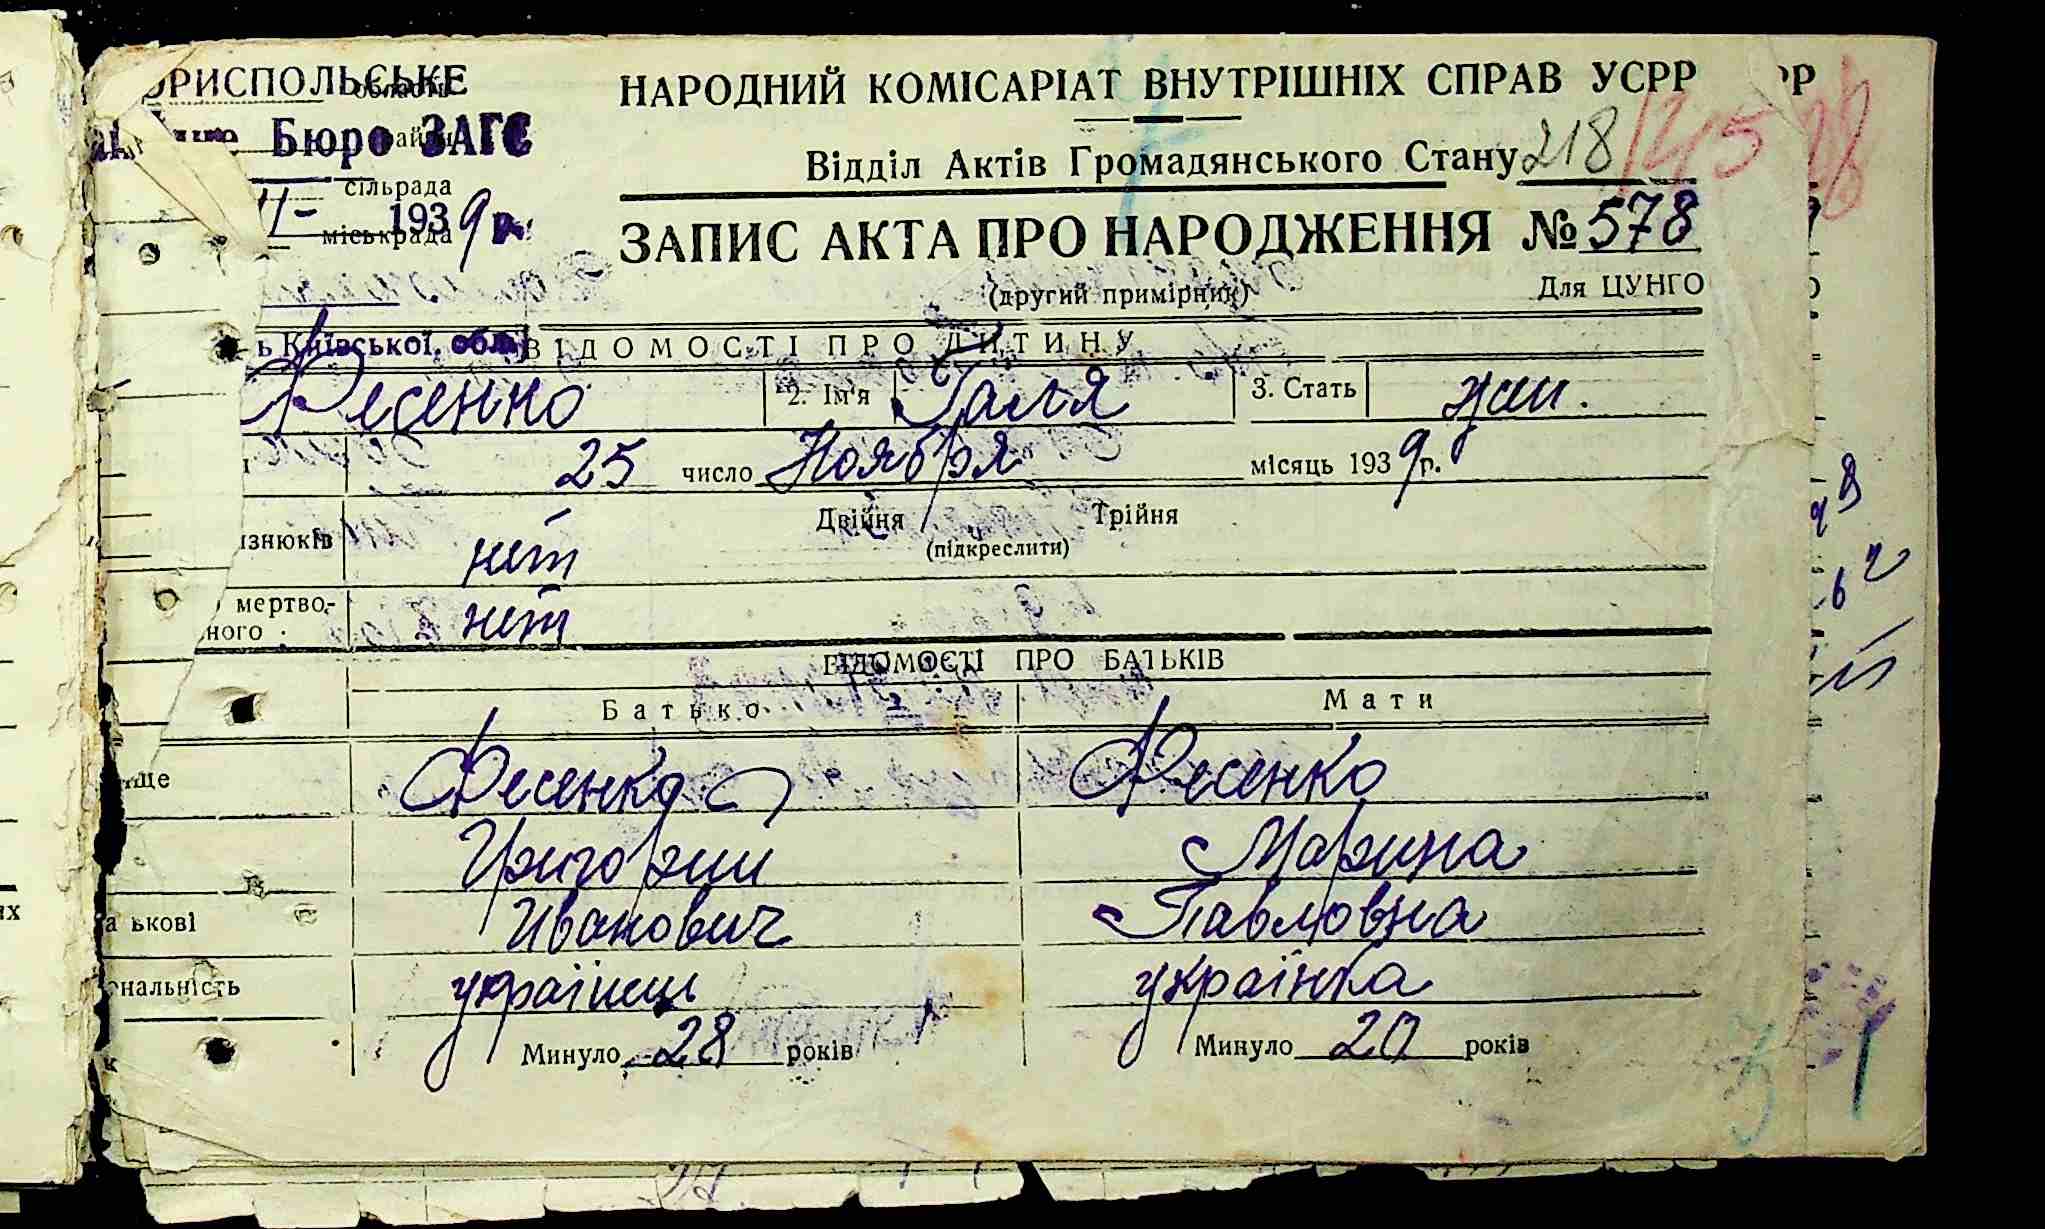 ОРИСПОЛЬСЬКЕ
область
Бюро ЗАГС
район
сільрада
1939 р.
міськрада
НАРОДНИЙ КОМІСАРІАТ ВНУТРІШНІХ СПРАВ УСРР
РР
Відділ Актів Громадянського Стану 218
ЗАПИС АКТА ПРО НАРОДЖЕННЯ № 578
(другий примірник)
Для ЦУНГО
ь Київської обл.
ВІДОМОСТІ ПРО ДИТИНУ
Фесенко
2. Ім'я Галя
3. Стать жін.
25 число Ноября місяць 1939 р.
Двійня Трійня
изнюків нет
(підкреслити)
мертво-
ного нет
ВІДОМОСТІ ПРО БАТЬКІВ
Батько Мати
ище Фесенко Фесенко
Григорий Марина
ькові Иванович Павловна
ональність українець українка
к Минуло 28 років Минуло 20 років